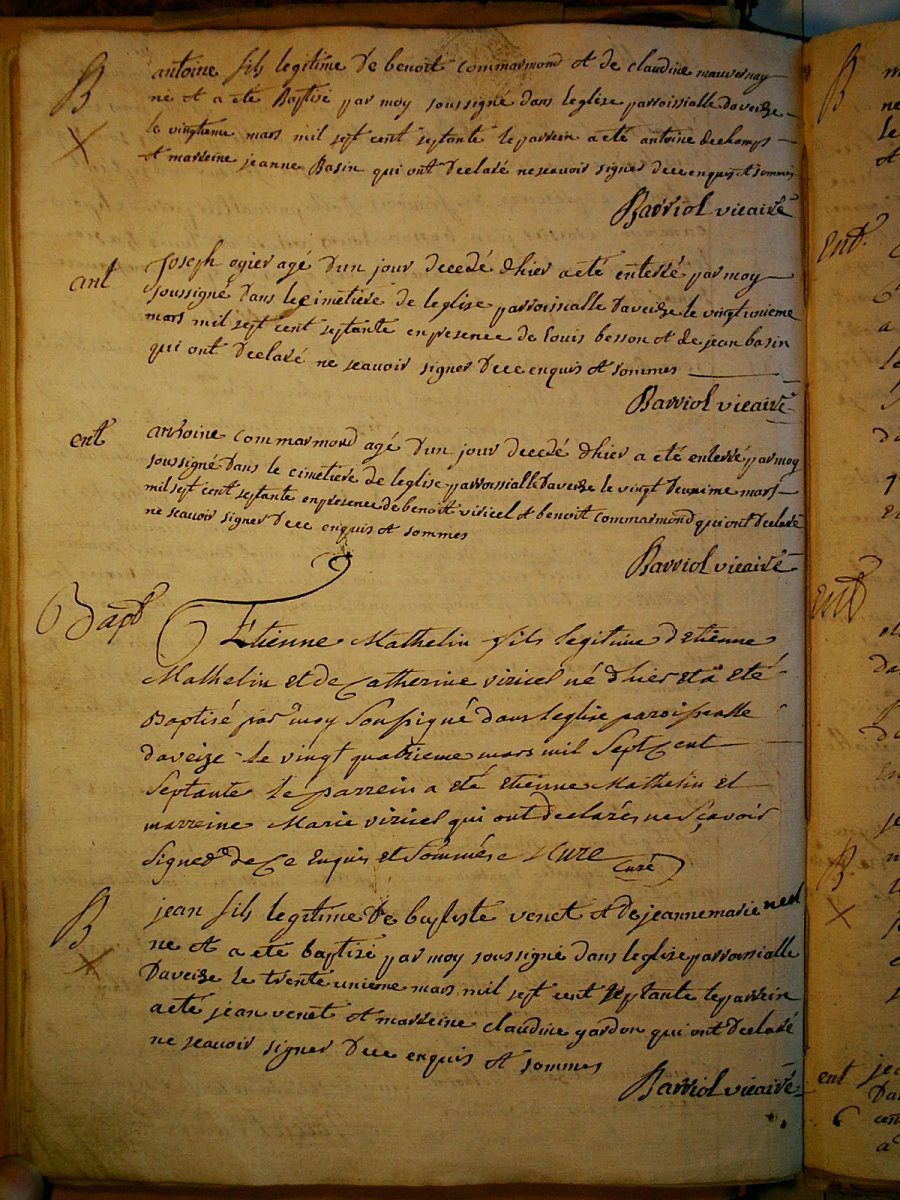 B
antoine fils legitime de benoit commarmond et de claudine mauvernay
né et a eté Baptisé par moy soussigné dans leglise parroissialle daveize
le vingtieme mars mil sept cent septante le parrein a eté antoine dechamps
et marreine jeanne Basin qui ont declaré ne scavoir signer de ce enquis et sommes
Barriol vicaire
ent
Joseph ogier agé d'un jour decedé dhier a eté enterré par moy
soussigné dans le cimetiere de leglise parroissialle daveize le vingtunieme
mars mil sept cent septante en presence de louis besson et de jean basin
qui ont declaré ne scavoir signer de ce enquis et sommes
Barriol vicaire
ent
antoine commarmond agé d'un jour decedé dhier a eté enterré par moy
soussigné dans le cimetiere de leglise parroissialle daveize le vingt deuxieme mars
mil sept cent septante en presence de benoit viricel et benoit commarmond qui ont declaré
ne scavoir signer de ce enquis et sommes
Barriol vicaire
Bapt
Etienne Mathelin fils legitime d'etienne
Mathelin et de Catherine viricel né dhier et a eté
Baptisé par moy soussigné dans leglise paroissialle
daveize le vingt quatrieme mars mil sept Cent
Septante le parrein a eté etienne Mathelin et
marreine Marie viricel qui ont declarés ne sçavoir
Signer de Ce Enquis et Sommés
Curé
B
jean fils legitime de baptiste venet et de jeanne marie
né et a eté baptisé par moy soussigné dans leglise parroissialle
Daveize le trente unieme mars mil sept cent septante le parrein
a eté jean venet et marreine claudine gardon qui ont declaré
ne scavoir signer de ce enquis et sommes
Barriol vicaire
B
ent.
ent
B.
ent